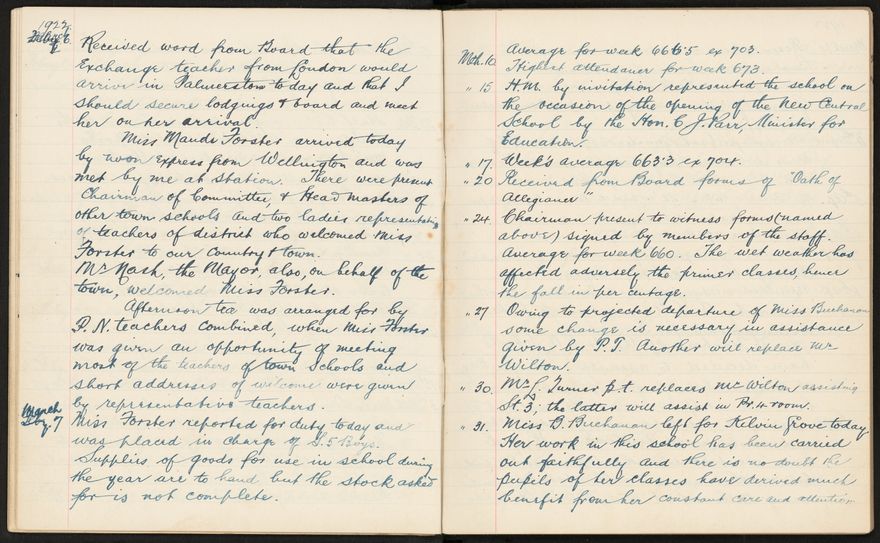 1922
Received word from Board that the
Exchange teacher from London would
arrive in Palmerston today and that I
should secure lodgings & board and meet
her on her arrival.
Miss Maude Forster arrived today
by noon express from Wellington and was
met by me at station. There were present
Chairman of Committee, & Head masters of
other town schools and two ladies representative
of teachers of district who welcomed Miss
Forster to our country & town.
Mr Nash, the Mayor, also, on behalf of the
town, welcomed Miss Forster.
Afternoon tea was arranged for by
P.N. teachers combined, when Miss Forster
was given an opportunity of meeting
most of the teachers of town Schools and
short addresses of welcome were given
by representative teachers.
March 7 Miss Forster reported for duty today and
was placed in charge of S.5 Boys.
Supplies of goods for use in school during
the year are to hand but the stock asked
for is not complete.
Mch. 10 Average for week 666.5 ex 703.
Highest attendance for week 673.
" 15 H.M. by invitation represented the school on
the occasion of the opening of the New Central
School by the Hon. C J. Parr, Minister for
Education.
" 17 Week's average 663.3 ex 704.
" 20 Received from Board forms of "Oath of
Allegiance"
" 24. Chairman present to witness forms (named
above) signed by members of the staff.
Average for week 660. The wet weather has
affected adversely the primer classes, hence
the fall in per centage.
" 27 Owing to projected departure of Miss Buchanan
some change is necessary in assistance
given by P.T. Another will replace Mr
Wilton.
" 30. Mr L. Turner p.t. replaces Mr Wilton assisting
St. 3; the latter will assist in Pr. 4 room.
" 31. Miss B. Buchanan left for Kelvin Grove today.
Her work in this school has been carried
out faithfully and there is no doubt the
pupils of her classes have derived much
benefit from her constant care and attention